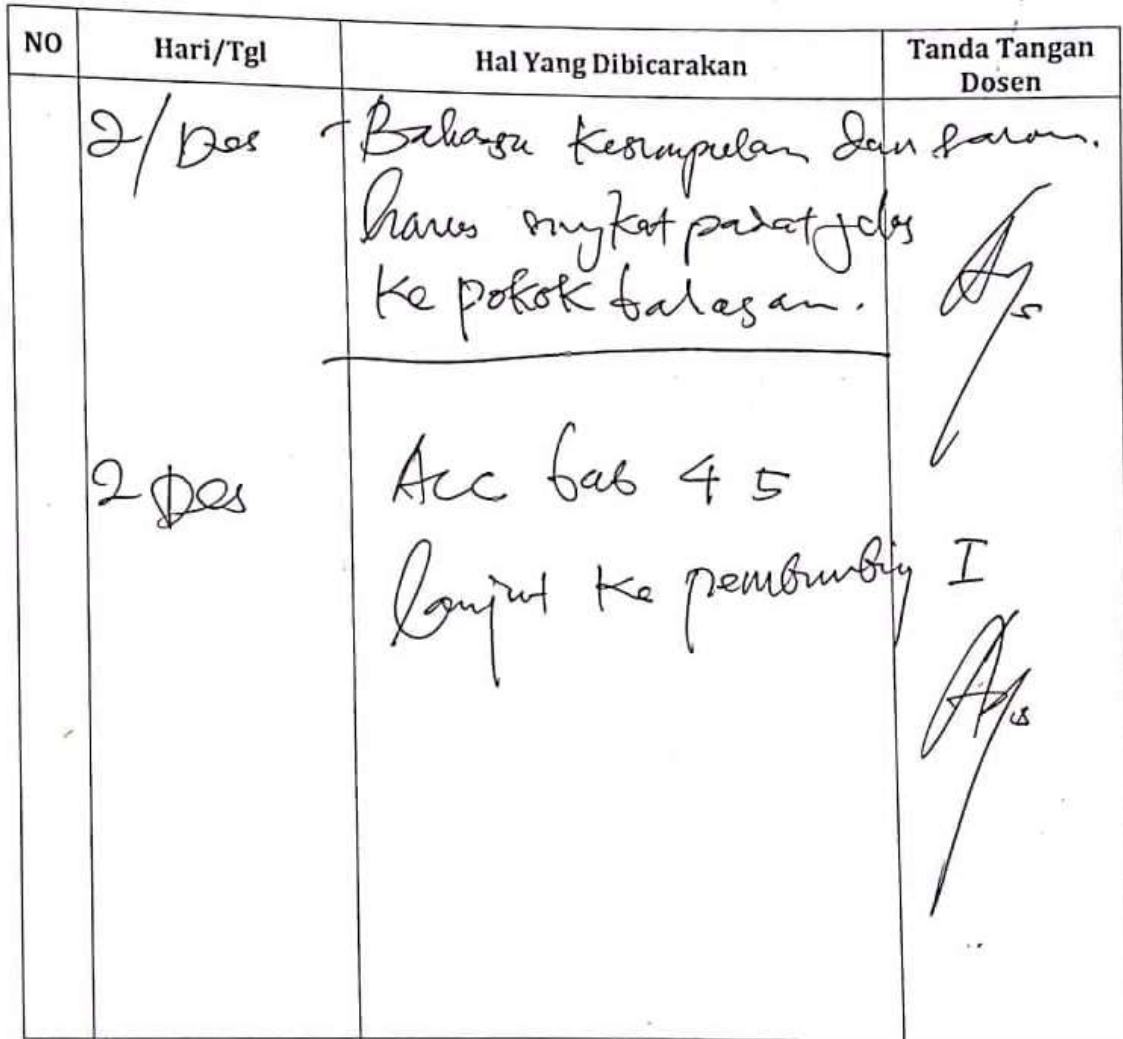 NO Hari/Tgl Hal Yang Dibicarakan Tanda Tangan Dosen
2/Des - Bahasa Kesimpulan dan saran.
harus singkat padat jelas
Ke pokok bahasan.
2 Des Acc bab 4 5
lanjut Ke pembimbing I